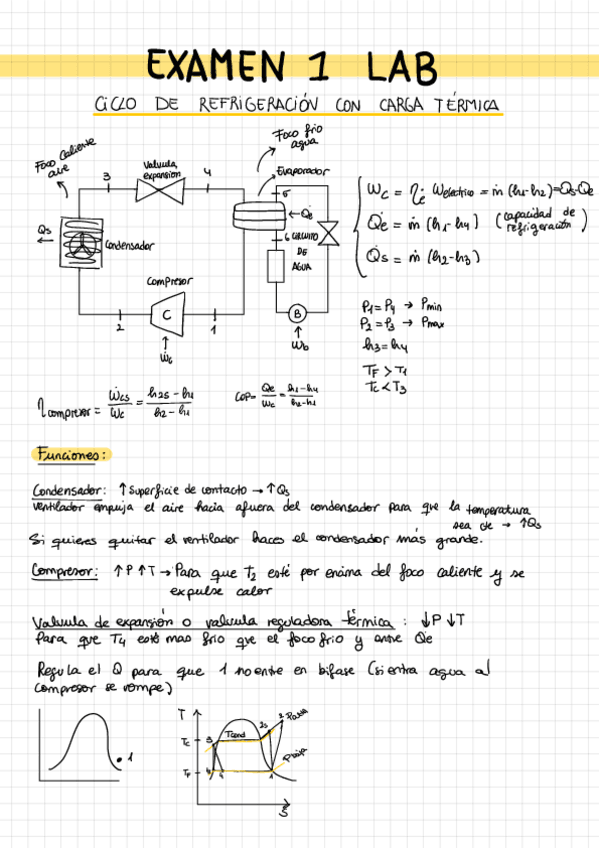 EXAMEN 1 LAB
CICLO DE REFRIGERACIÓN CON CARGA TÉRMICA
Foco Caliente
aire
3
Valvula
expansión
4
Foco frio
agua
Evaporador
5
Q̇e
6 CIRCUITO
DE
AGUA
Q̇s
Condensador
Compresor
C
2
1
B
Ẇc
Ẇb
Ẇc = η̇e Welectrico = ṁ (h1-h2) = Q̇s-Q̇e
Q̇e = ṁ (h1-h4) (capacidad de refrigeración)
Q̇s = ṁ (h2-h3)
P1 = P4 → Pmin
P2 = P3 → Pmax
h3 = h4
TF > T1
TC < T3
η compresor = Ẇcs / Ẇc = h2s - h1 / h2 - h1
COP = Q̇e / Ẇc = h1-h4 / h2-h1
Funciones:
Condensador: ↑ Superficie de contacto → ↑ Q̇s
ventilador empuja el aire hacia afuera del condensador para que la temperatura
sea cte → ↑Q̇s
Si quieres quitar el ventilador haces el condensador más grande.
Compresor: ↑P ↑T → Para que T2 esté por encima del foco caliente y se
expulse calor
Valvula de expansión o valvula reguladora térmica : ↓P ↓T
Para que T4 esté mas frio que el foco frio y entre Q̇e
Regula el Q para que 1 no entre en bifase (si entra agua al
compresor se rompe)
1
T
TC
3
Tcond
2s
2
Pmax
TF
4
Pmin
1
S